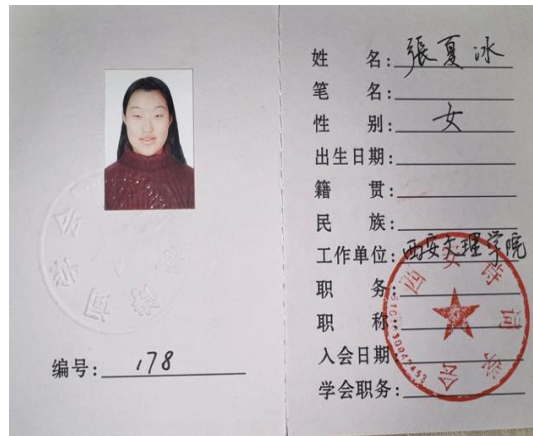 编号: 178
姓 名: 張夏冰
笔 名:
性 别: 女
出生日期:
籍 贯:
民 族:
工作单位: 西安文理学院
职 务:
职 称:
入会日期:
学会职务:
西安诗词学会